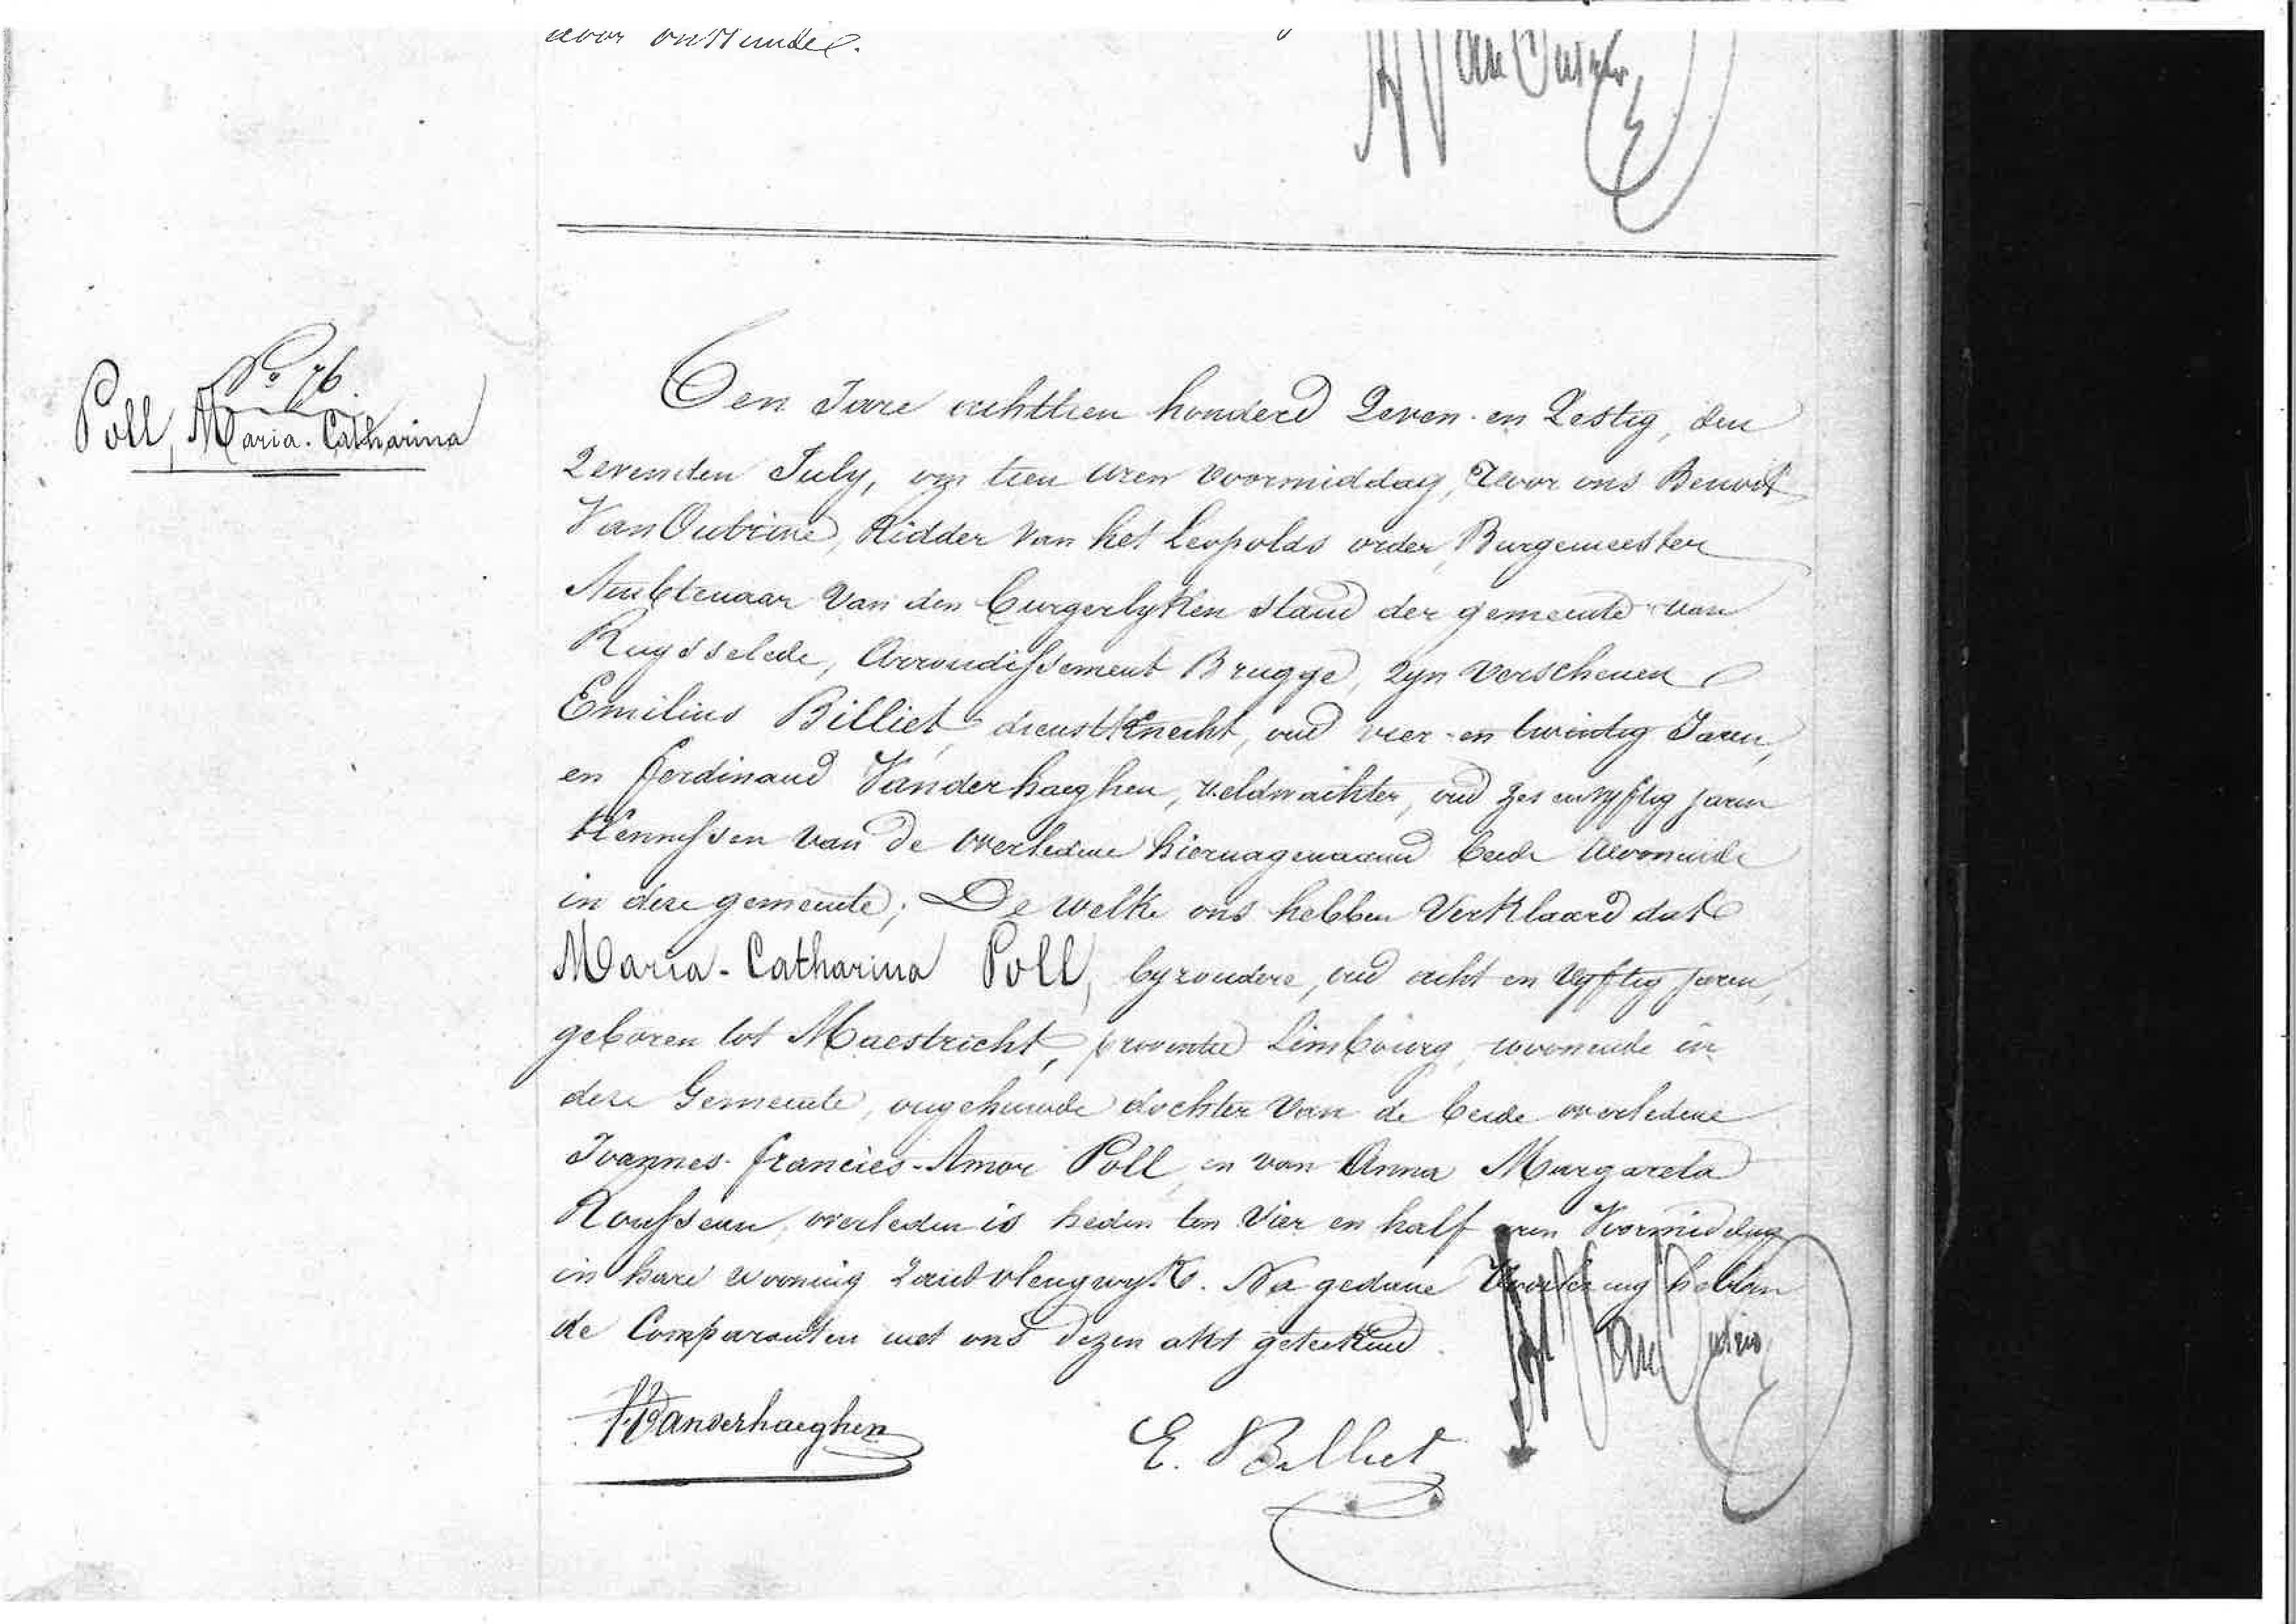 N° 76.
Poll, Maria-Catharina
Ten Jare achttien honderd Zeven-en Zestig, den
Zevenden July, om tien uren voormiddag, voor ons Benoit
Van Outrive, Ridder van het Leopolds order, Burgemeester
Ambtenaar van den burgerlyken stand der gemeente van
Ruysselede, Arrondissement Brugge, zyn verschenen
Emilius Billiet, dienstknecht, oud vier-en twintig Jaren,
en ferdinand Vanderhaeghen, veldwachter, oud zes en vyftig jaren
Kennissen van de overledene hiernagenaamd beide woonende
in deze gemeente; De welke ons hebben verklaard dat
Maria-Catharina Poll, byzondere, oud acht en vyftig jaren,
geboren tot Maestricht, provintie Limbourg, woonende in
deze Gemeente, ongehuwde dochter van de beide overledene
Joannes-francies-Amor Poll, en van Anna Margareta
overleden is heden ten vier en half uren Voormiddag
in hare wooning Zandvleugwyk. Na gedane Voorlezing hebben
de Comparanten met ons dezen akt geteekend.
F. Vanderhaeghen
E. Billiet